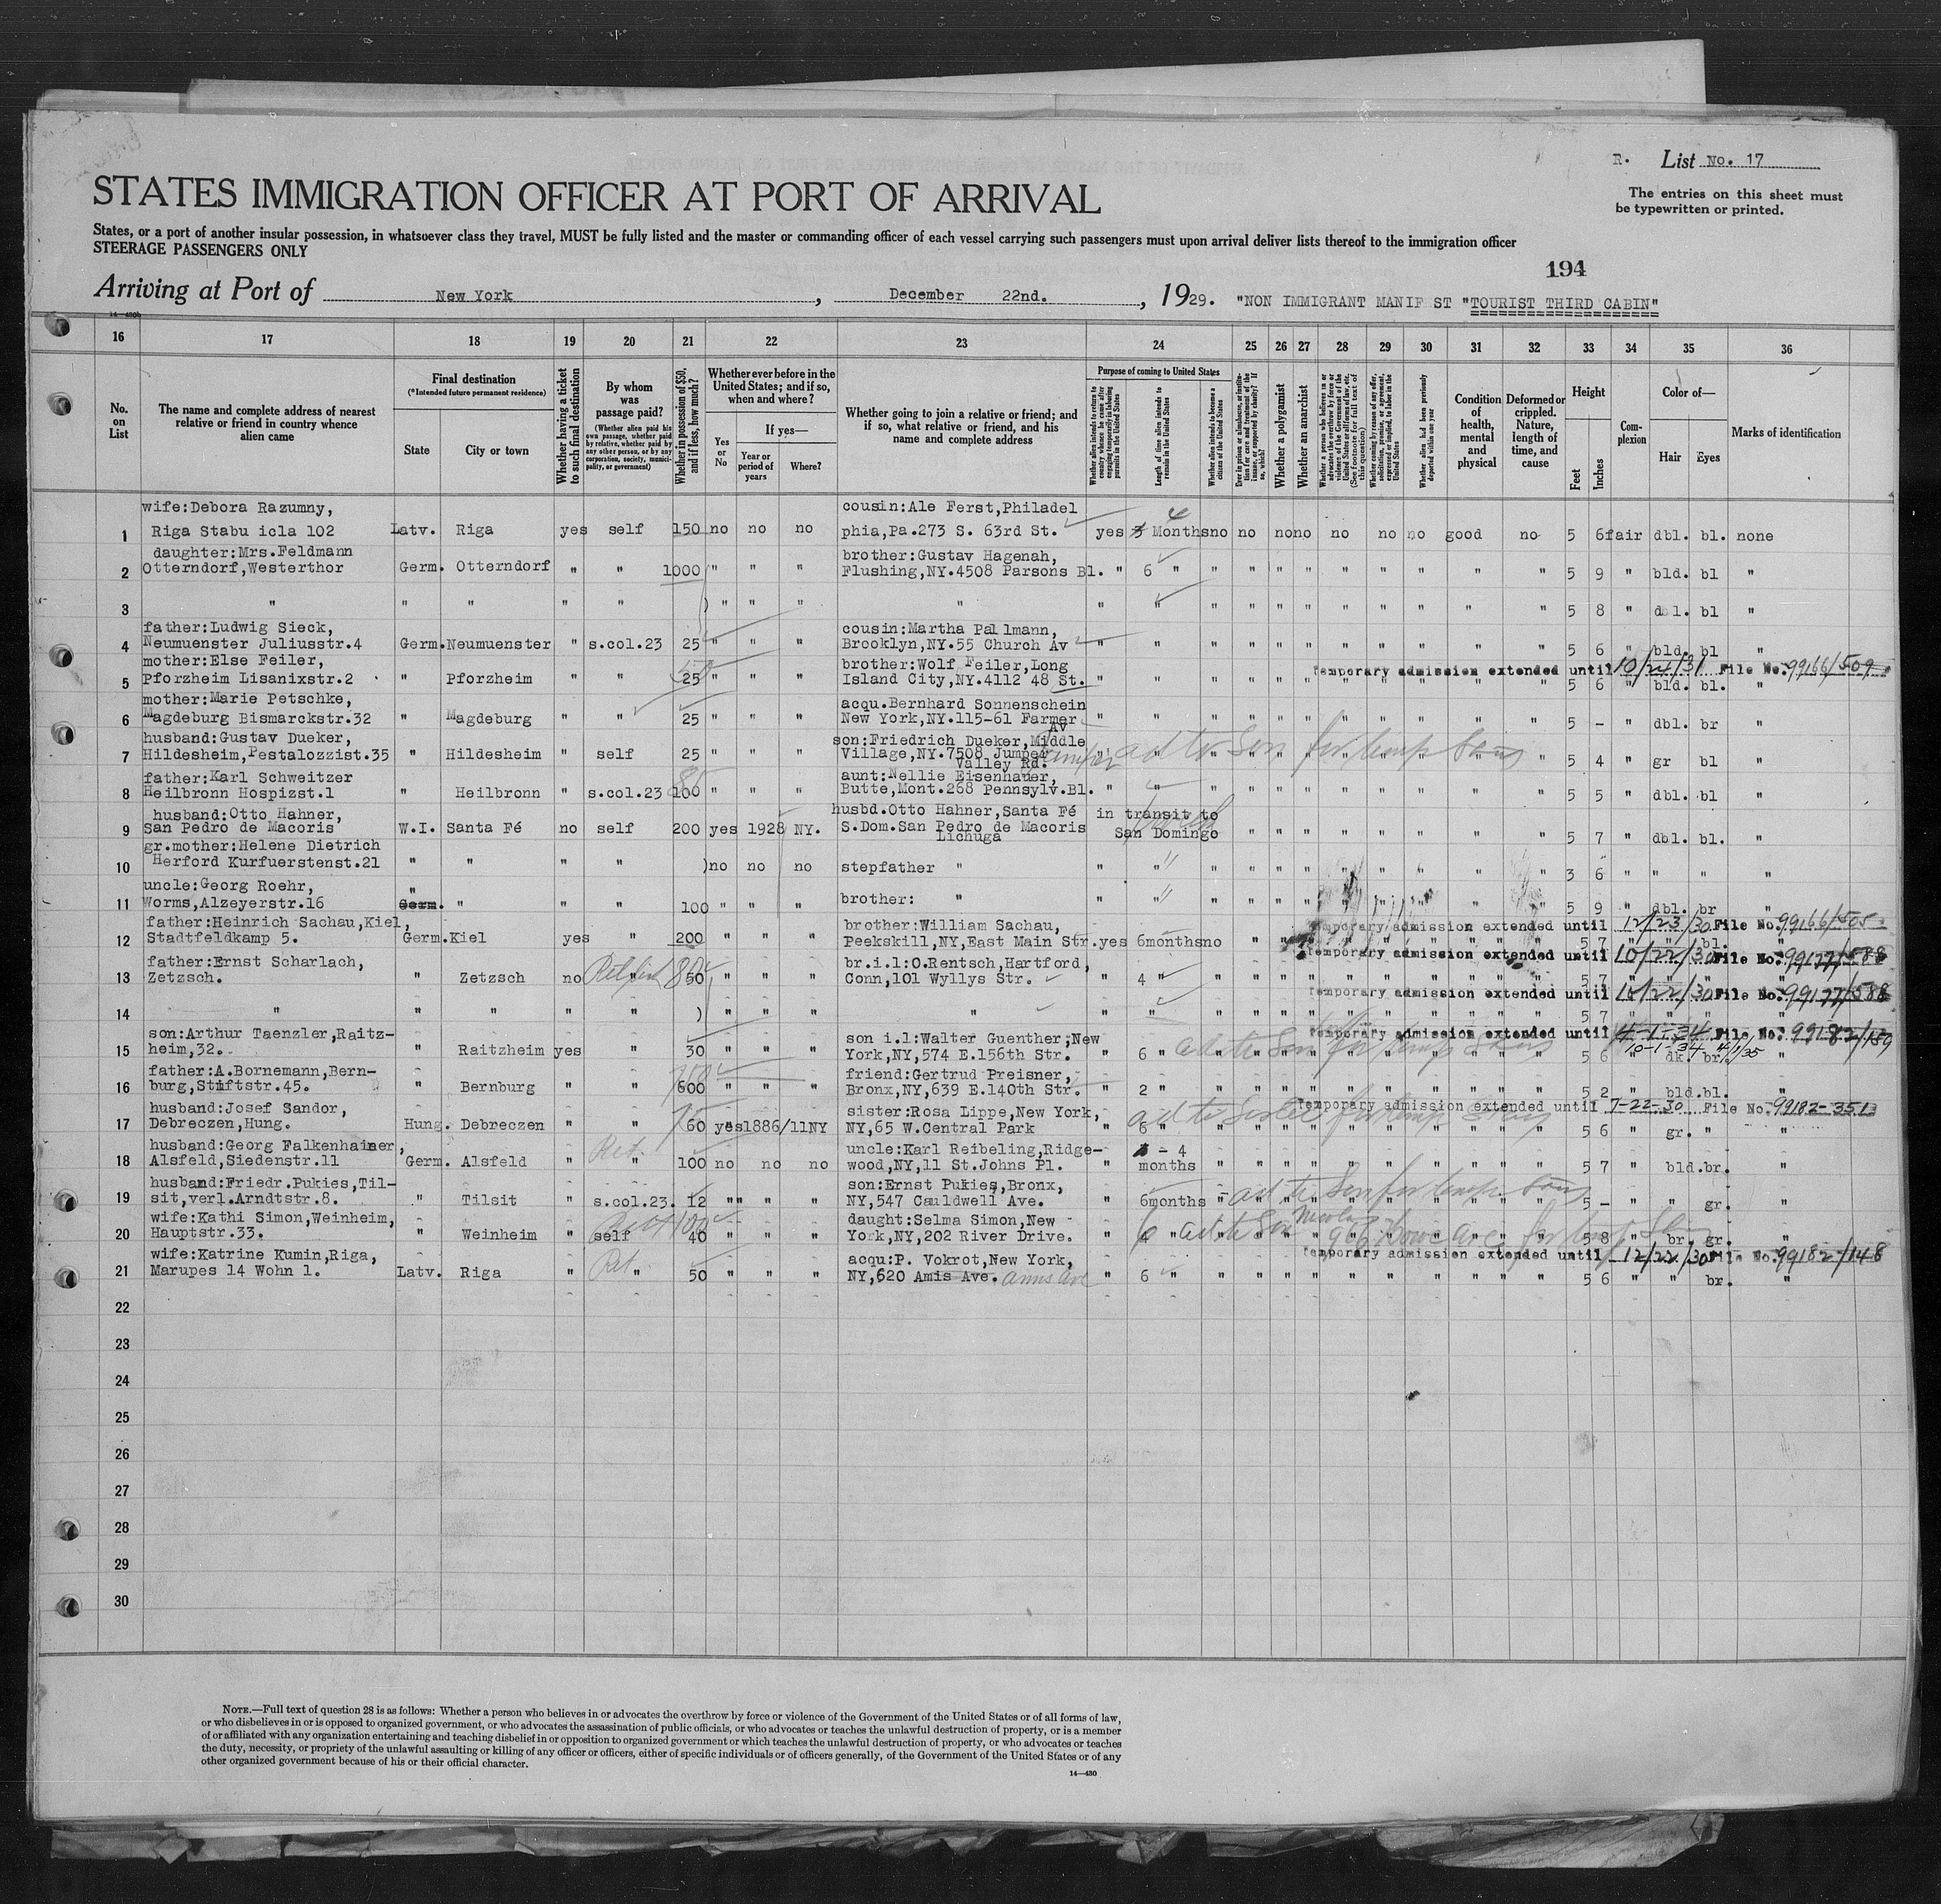 R. List No. 17
STATES IMMIGRATION OFFICER AT PORT OF ARRIVAL
The entries on this sheet must
be typewritten or printed.
States, or a port of another insular possession, in whatsoever class they travel, MUST be fully listed and the master or commanding officer of each vessel carrying such passengers must upon arrival deliver lists thereof to the immigration officer
STEERAGE PASSENGERS ONLY
194
Arriving at Port of New York, December 22nd., 1929. "NON IMMIGRANT MANIFEST "TOURIST THIRD CABIN"
14—430b
16 17 18 19 20 21 22 23 24 25 26 27 28 29 30 31 32 33 34 35 36
No. on List
The name and complete address of nearest relative or friend in country whence alien came
Final destination
(*Intended future permanent residence)
State
City or town
Whether having a ticket to such final destination
By whom was passage paid?
(Whether alien paid his own passage, whether paid by relative, whether paid by any other person, or by any corporation, society, municipality, or government)
Whether in possession of $50, and if less, how much?
Whether ever before in the United States; and if so, when and where?
Yes or No
If yes—
Year or period of years
Where?
Whether going to join a relative or friend; and if so, what relative or friend, and his name and complete address
Purpose of coming to United States
Whether alien intends to return to country whence he came after engaging temporarily in laboring pursuits in the United States
Length of time alien intends to remain in the United States
Whether alien intends to become a citizen of the United States
Ever in prison or almshouse, or institution for care and treatment of the insane, or supported by charity? If so, which?
Whether a polygamist
Whether an anarchist
Whether a person who believes in or advocates the overthrow by force or violence of the Government of the United States or all forms of law, etc. (See footnote for full text of this question)
Whether coming by reason of any offer, solicitation, promise, or agreement, expressed or implied, to labor in the United States
Whether alien had been previously deported within one year
Condition of health, mental and physical
Deformed or crippled. Nature, length of time, and cause
Height
Feet
Inches
Complexion
Color of—
Hair
Eyes
Marks of identification
wife:Debora Razumny, cousin:Ale Ferst,Philadel 4
1 Riga Stabu icla 102 Latv. Riga yes self 150 no no no phia,Pa.273 S. 63rd St. yes 3 Months no no no no no no no good no 5 6 fair dbl. bl. none
daughter:Mrs.Feldmann brother:Gustav Hagenah,
2 Otterndorf,Westerthor Germ. Otterndorf " " 1000 " " " Flushing,NY.4508 Parsons Bl. " 6 " " " " " " " " " " 5 9 " bld. bl "
3 " " " " " ) " " " " " " " " " " " " " " " 5 8 " dbl. bl "
father:Ludwig Sieck, cousin:Martha Pallmann,
4 Neumuenster Juliusstr.4 Germ. Neumuenster " s.col.23 25 " " " Brooklyn,NY.55 Church Av " " " " " " " " " " " 5 6 " bld. bl "
mother:Else Feiler, 50 brother:Wolf Feiler,Long Temporary admission extended until 10/24/31 File No. 99166/509
5 Pforzheim Lisanixstr.2 " Pforzheim " " 25 " " " Island City,NY.4112 48 St. " " " " " " " " " " " 5 6 " bld. bl. "
mother:Marie Petschke, acqu.Bernhard Sonnenschein
6 Magdeburg Bismarckstr.32 " Magdeburg " " 25 " " " New York,NY.115-61 Farmer Av " " " " " " " " " " " 5 - " dbl. br "
husband:Gustav Dueker, son:Friedrich Dueker,Middle
7 Hildesheim,Pestalozzist.35 " Hildesheim " self 25 " " " Village,NY.7508 Jumper Valley Rd. " ad to Son for temp " 5 4 " gr bl "
father:Karl Schweitzer 85 aunt:Nellie Eisenhauer,
8 Heilbronn Hospizst.1 " Heilbronn " s.col.23 100 " " " Butte,Mont.268 Pennsylv.Bl. " " " " " " " " " " " 5 5 " dbl. bl "
husband:Otto Hahner, husbd.Otto Hahner,Santa Fé in transit to
9 San Pedro de Macoris W.I. Santa Fé no self 200 yes 1928 NY. S.Dom.San Pedro de Macoris Lichuga San Domingo " " " " " " " " 5 7 " dbl. bl. "
gr.mother:Helene Dietrich
10 Herford Kurfuerstenst.21 " " " " ) no no no stepfather " " " " " " " " " " " " 3 6 " " " "
uncle:Georg Roehr, "
11 Worms,Alzeyerstr.16 Germ. " " " 100 " " " brother: " " " " " " " " " " " " 5 9 " dbl. br "
father:Heinrich Sachau,Kiel, brother:William Sachau, Temporary admission extended until 12/23/30 File No. 99166/505
12 Stadtfeldkamp 5. Germ. Kiel yes " 200 " " " Peekskill,NY,East Main Str. yes 6months no " " " " " " " " 5 7 " " bl. "
father:Ernst Scharlach, br.i.l:O.Rentsch,Hartford, Temporary admission extended until 10/22/30 File No. 99177/588
13 Zetzsch. " Zetzsch no " 50 " " " Conn,101 Wyllys Str. " 4 " " " " " " " " " " 5 7 " " " "
Temporary admission extended until 10/22/30 File No. 99177/588
14 " " " " " ) " " " " " " " " " " " " " " " 5 7 " " " "
son:Arthur Taenzler,Raitz- son i.l:Walter Guenther,New Temporary admission extended until 4-1-34 File No. 99182/159
15 heim,32. " Raitzheim yes " 30 " " " York,NY,574 E.156th Str. " 6 " ad to Son for temp 10-1-34 4/1/35 5 6 " dk. br. "
father:A.Bornemann,Bern- friend:Gertrud Preisner,
16 burg,Stiftstr.45. " Bernburg " " 600 " " " Bronx,NY,639 E.140th Str. " 2 " " " " " " " " " " 5 2 " bld. bl. "
husband:Josef Sandor, 75 sister:Rosa Lippe,New York, Temporary admission extended until 7-22-30 File No. 99182-351
17 Debreczen,Hung. Hung. Debreczen " " 60 yes 1886/11 NY NY,65 W.Central Park " 6 " ad to sister for temp " 5 6 " gr. " "
husband:Georg Falkenhainer, Ret. uncle:Karl Reibeling,Ridge- - 4
18 Alsfeld,Siedenstr.11 Germ. Alsfeld " " 100 no no no wood,NY,11 St.Johns Pl. " months " " " " " " " " " 5 7 " bld. br. "
husband:Friedr.Pukies,Til- son:Ernst Pukies,Bronx,
19 sit,verl.Arndtstr.8. " Tilsit " s.col.23. 12 "" " " NY,547 Cauldwell Ave. " 6months " ad to Son for temp 5 - " " gr. "
wife:Kathi Simon,Weinheim, 100 daught:Selma Simon,New
20 Hauptstr.33. " Weinheim " self 40 " " " York,NY,202 River Drive. " 6 " 5 8 " br. gr. "
wife:Katrine Kumin,Riga, Ret. acqu:P. Vokrot,New York, Temporary admission extended until 12/22/30 File No. 99182/148
21 Marupes 14 Wohn 1. Latv. Riga " " 50 " " " NY,620 Amis Ave. " 6 " " " " " " " " " " 5 6 " " br. "
22
23
24
25
26
27
28
29
30
NOTE.—Full text of question 28 is as follows: Whether a person who believes in or advocates the overthrow by force or violence of the Government of the United States or of all forms of law,
or who disbelieves in or is opposed to organized government, or who advocates the assassination of public officials, or who advocates or teaches the unlawful destruction of property, or is a member
of or affiliated with any organization entertaining and teaching disbelief in or opposition to organized government or which teaches the unlawful destruction of property, or who advocates or teaches
the duty, necessity, or propriety of the unlawful assaulting or killing of any officer or officers, either of specific individuals or of officers generally, of the Government of the United States or of any
other organized government because of his or their official character.
14—430